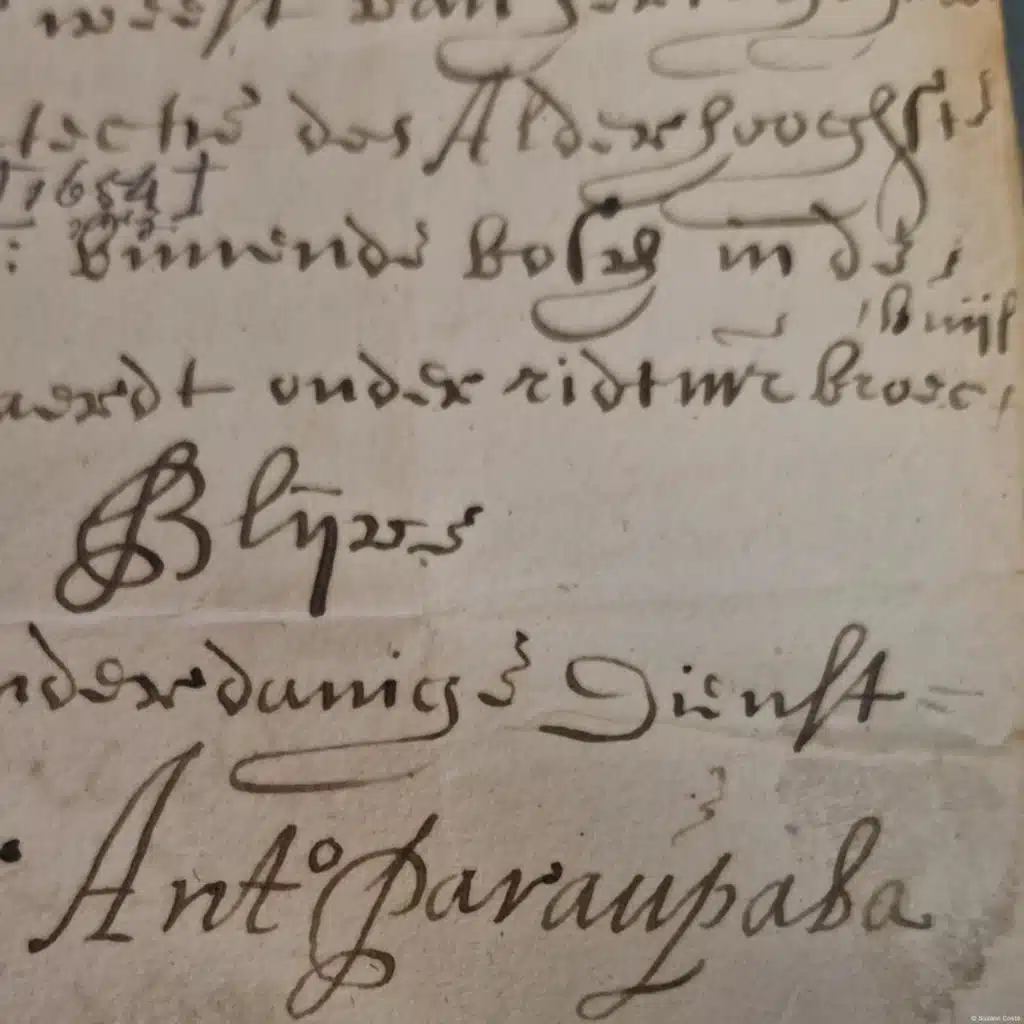 weest van
tectie des Alderhooghste
[1654]
: binnende bosch in de,
aerdt onder ridtmr broec,
Blijve
nderdanige Dienst =
Anto Paraupaba
© Suzane Costa